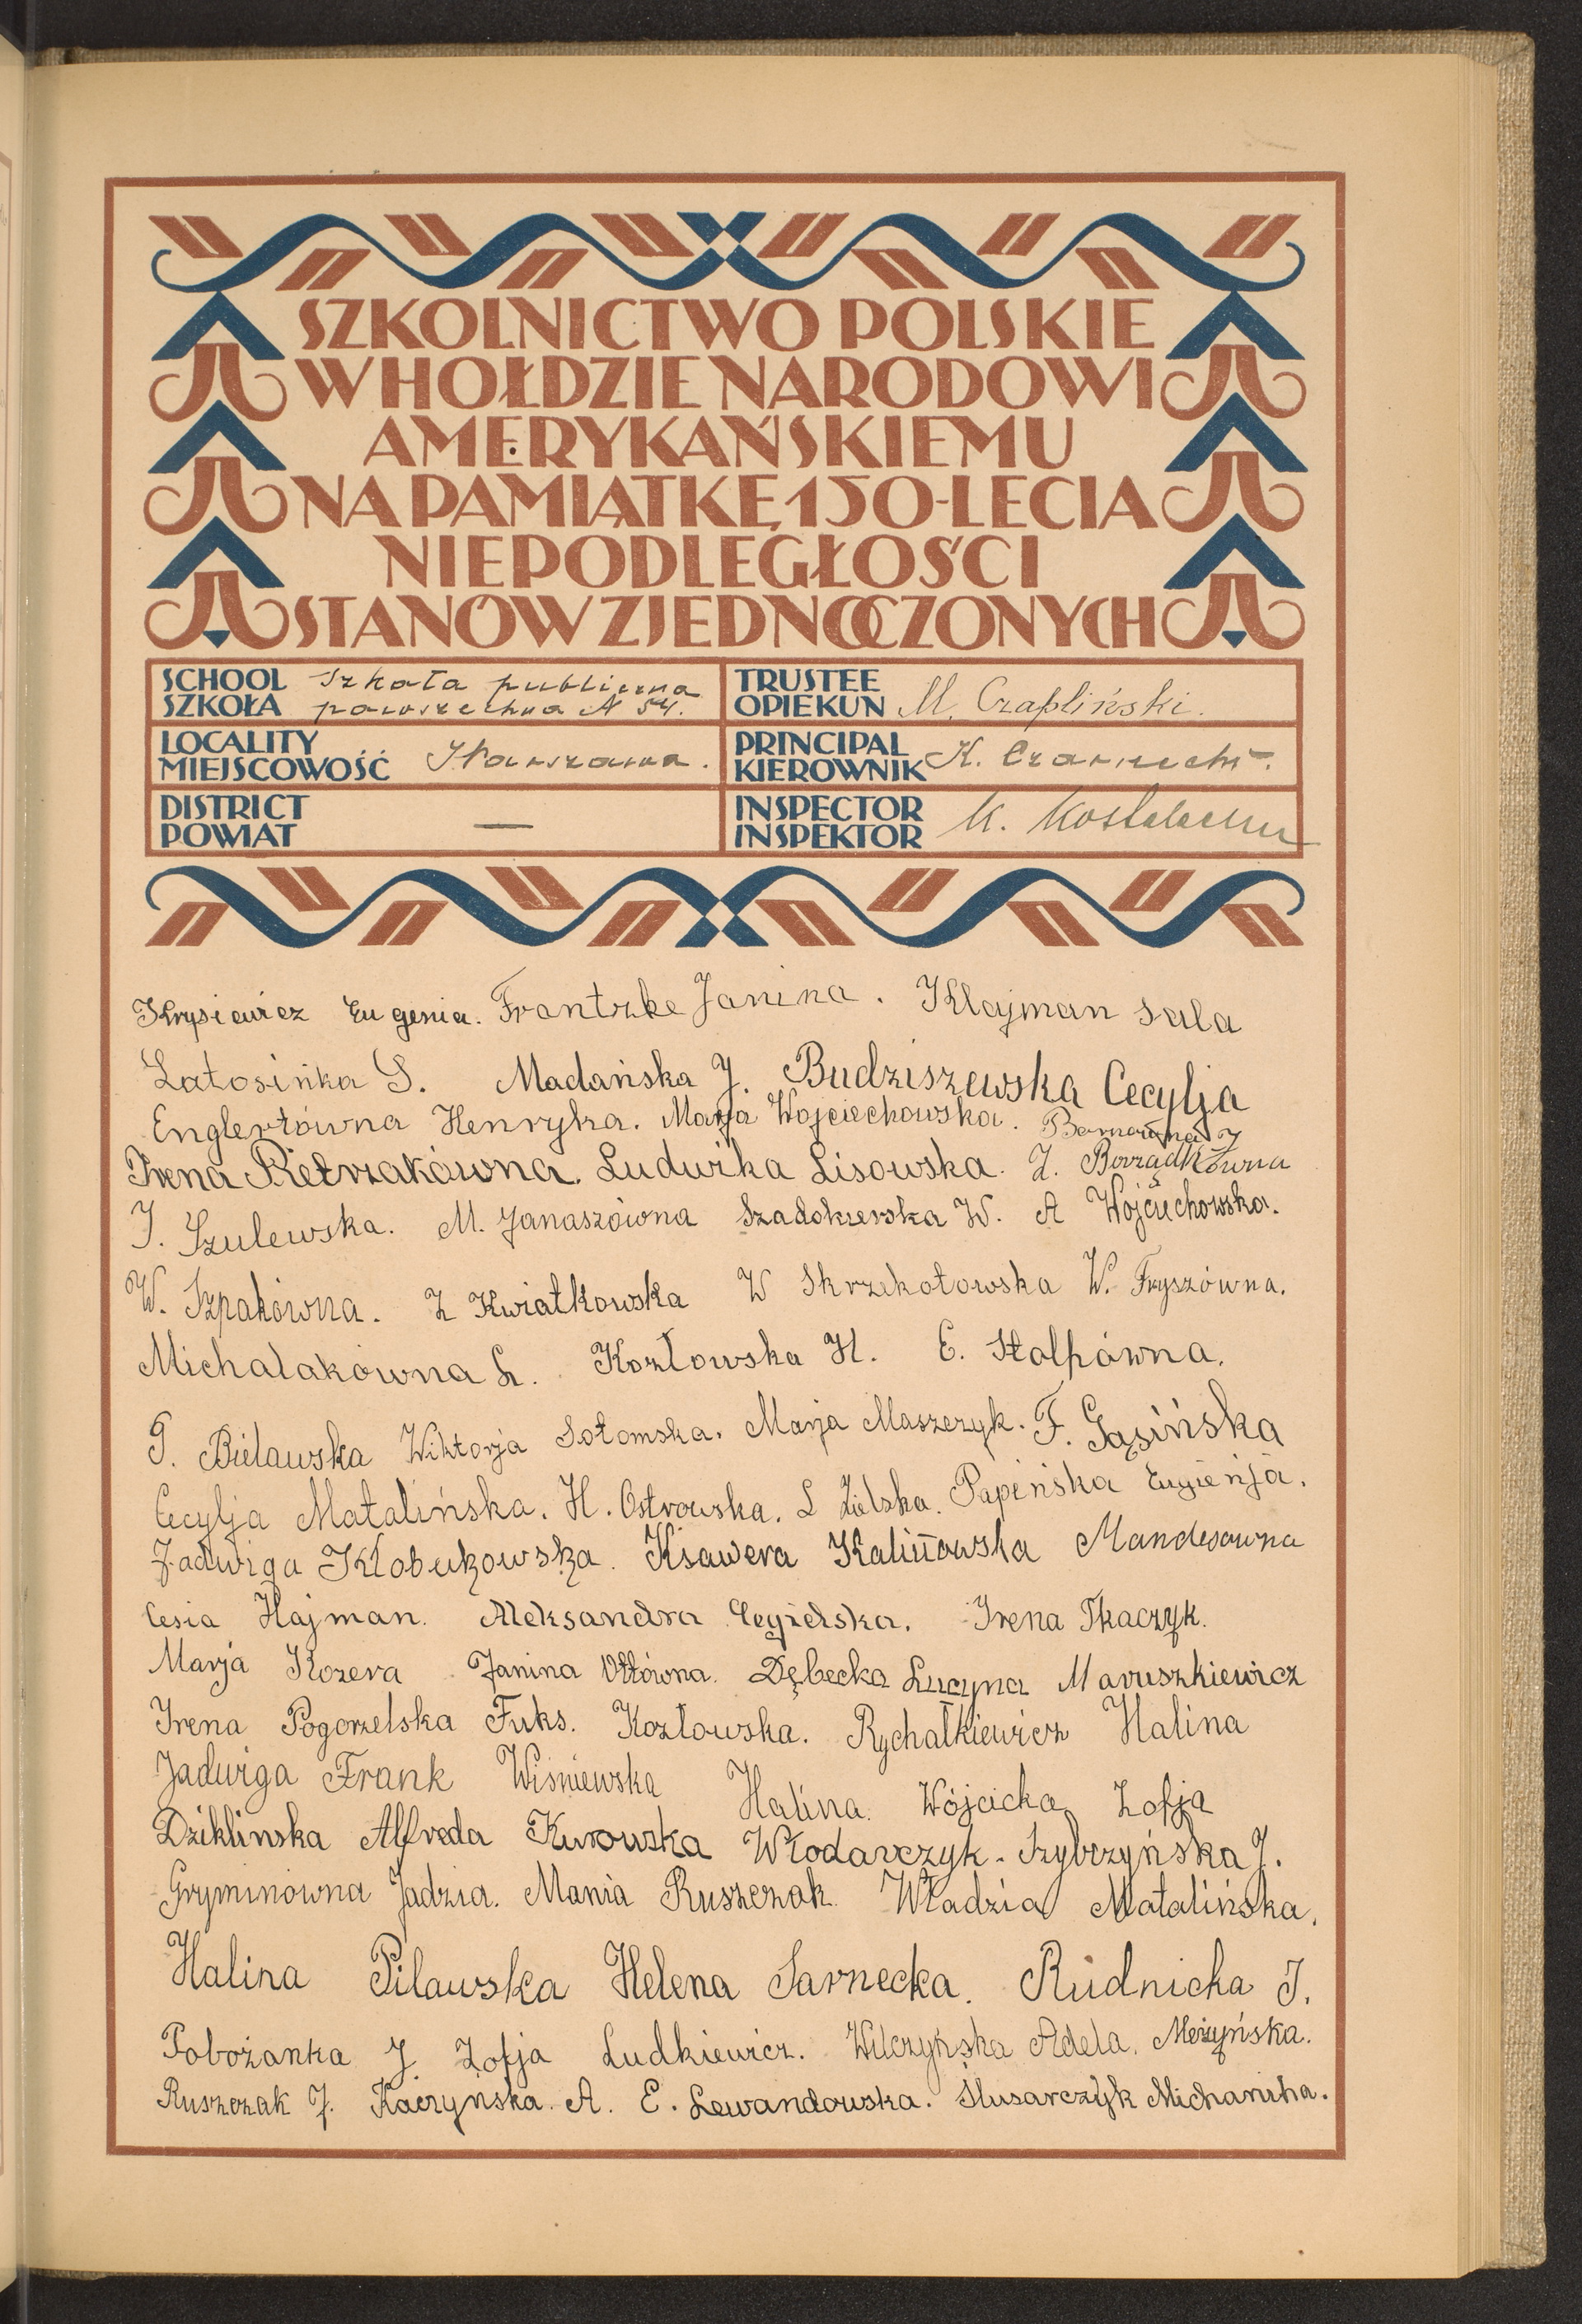 SZKOLNICTWO POLSKIE
W HOŁDZIE NARODOWI
AMERYKAŃSKIEMU
NA PAMIĄTKĘ 150-LECIA
NIEPODLEGŁOŚCI
STANÓW ZJEDNOCZONYCH
SCHOOL SZKOŁA Szkoła publiczna powszechna N 54.
TRUSTEE OPIEKUN M. Czapliński.
LOCALITY MIEJSCOWOŚĆ Warszawa.
PRINCIPAL KIEROWNIK K. Czarnecki.
DISTRICT POWIAT —
INSPECTOR INSPEKTOR K.
Krysiewicz Eugenia. Frantzke Janina. Klajman Sala
Latosińka S. Madańska J. Budziszewska Cecylja
Englertówna Henryka. Marja Wojciechowska.
Irena Pietrzakówna. Ludwika Lisowska. Z. Borządkówna
J. Szulewska. M. Janaszówna Szadkierska W. A Wojciechowska.
W. Szpakówna. Z Kwiatkowska W Skrzekotowska W. Fryszówna.
Michalakówna L. Kozłowska H. E. Stolpówna.
G. Bielawska Wiktorja Sołomska. Marja Maszczyk. F. Gąsińska
Cecylja Matalińska. H. Ostrowska. L Zielska. Papińska Eugienja.
Jadwiga Kłobukowska. Ksawera Kalinowska Mandesówna
Cesia Hajman. Aleksandra Cegielska. Irena Tkaczyk.
Marja Kozera Janina Ottówna. Dębecka Lucyna Maruszkiewicz
Irena Pogorzelska Fuks. Kozłowska. Rychałkiewicz Halina
Jadwiga Frank Wiśniewska Halina. Wójcicka Zofja
Dziklinska Alfreda Kurowska Włodarczyk. Szybrzyńska J.
Gryminówna Jadzia. Mania Ruszczak. Władzia Matalińska.
Halina Pilawska Helena Sarnecka. Rudnicka J.
Pobożanka J. Zofja Ludkiewicz. Wilczyńska Adela. Meżyńska.
Ruszczak J. Kaczyńska. A. E. Lewandowska. Ślusarczyk Michanina.